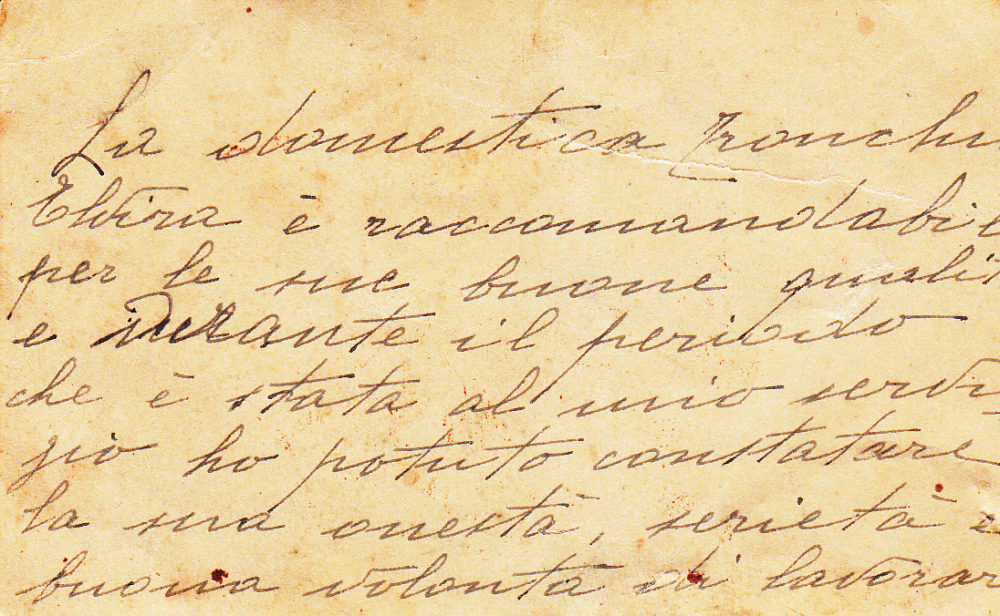 La domestica Zronchi
Elvira è raccomandabil
per le sue buone quali
e durante il periodo
che è stata al mio servi
zio ho potuto constatare
la sua onestà, serietà e
buona volontà di lavorar